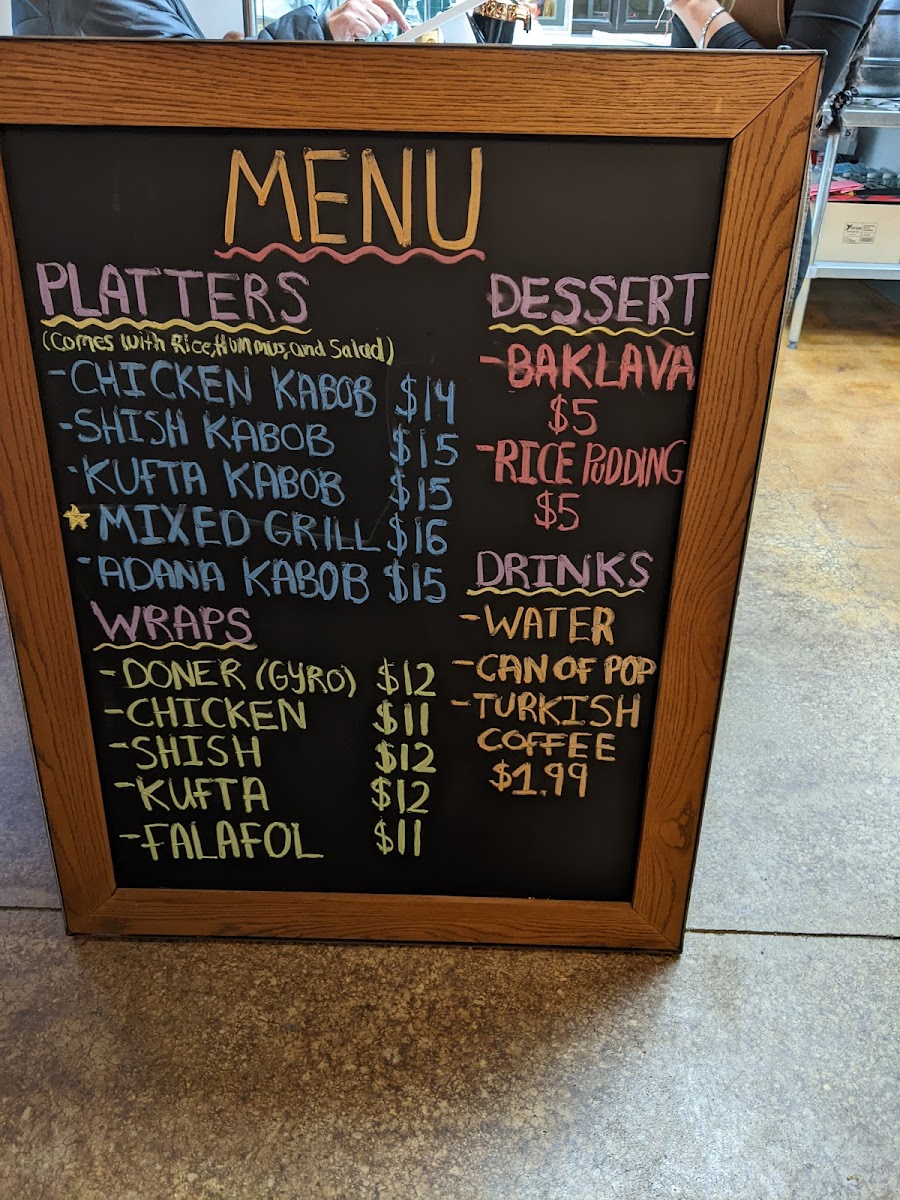 MENU
PLATTERS
(Comes with Rice, Hummus, and Salad)
-CHICKEN KABOB $14
-SHISH KABOB $15
-KUFTA KABOB $15
-MIXED GRILL $16
-ADANA KABOB $15
WRAPS
-DONER (GYRO) $12
-CHICKEN $11
-SHISH $12
-KUFTA $12
-FALAFOL $11
DESSERT
-BAKLAVA
$5
-RICE PUDDING
$5
DRINKS
-WATER
-CAN OF POP
-TURKISH
COFFEE
$1.99